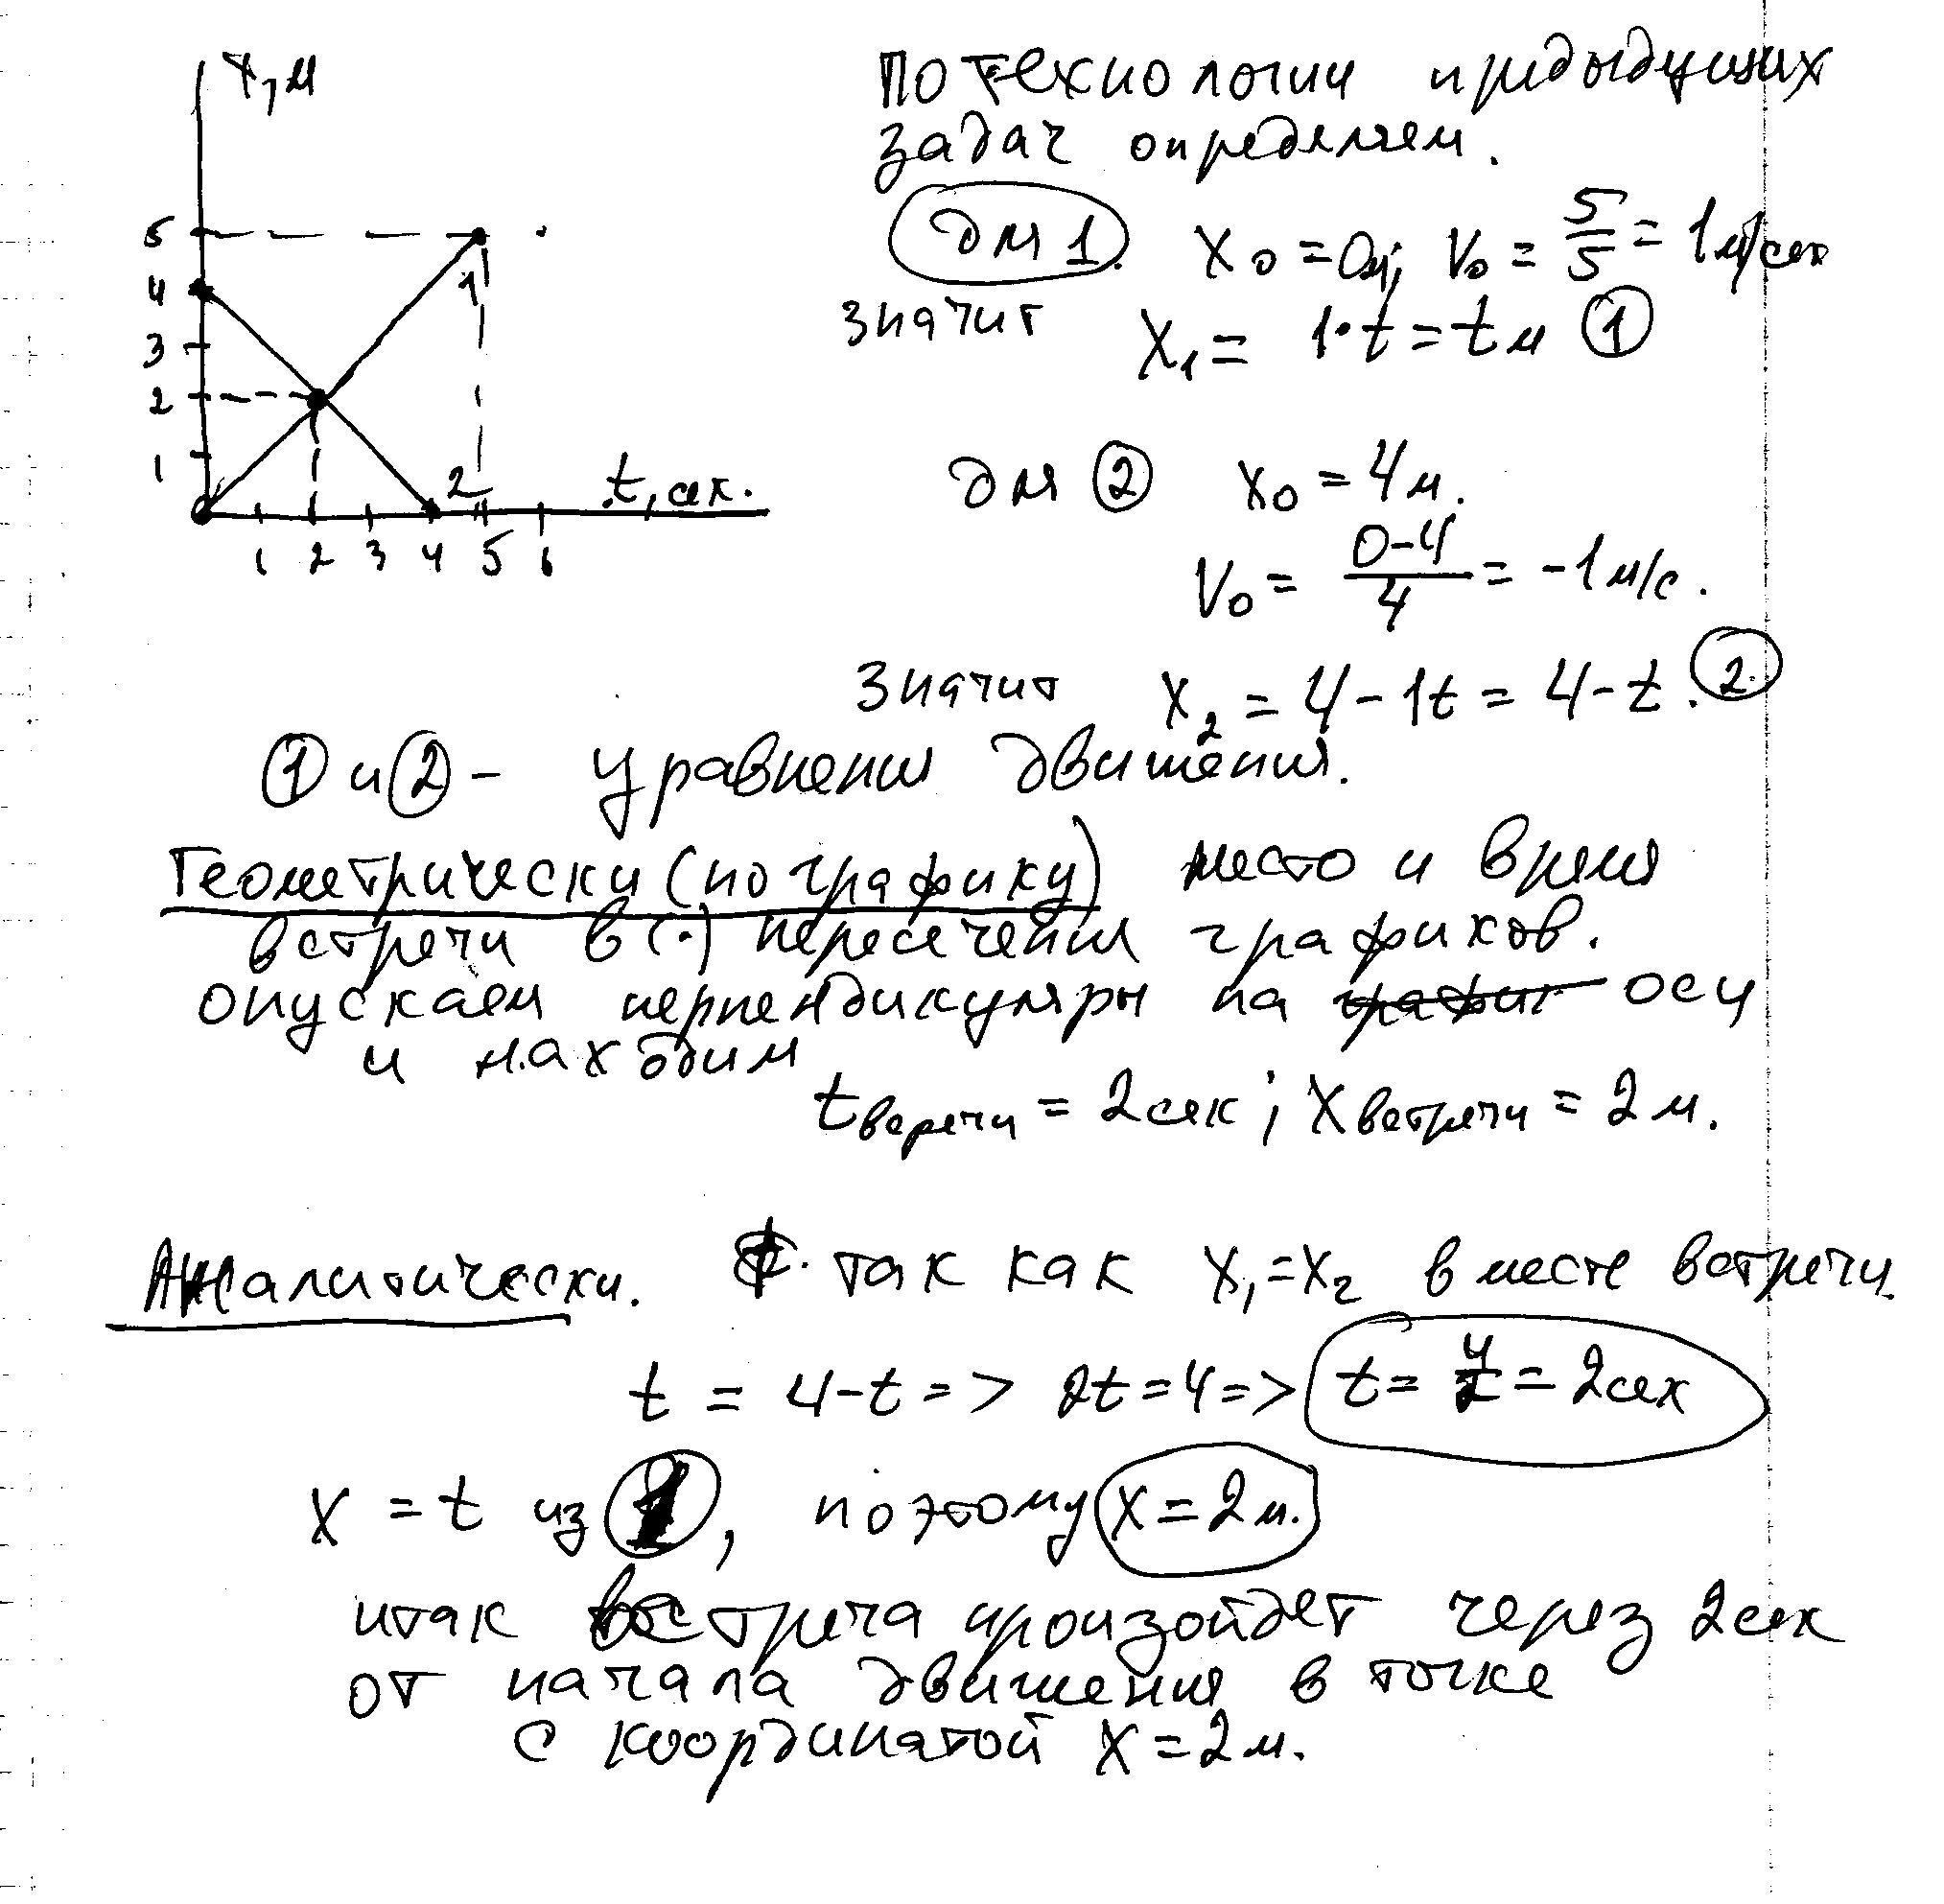 x, м
5
4
3
2
1
1
2
t, сек.
1 2 3 4 5 6
По технологии предыдущих
задач определяем.
для 1. x₀ = 0м; v₀ = 5/5 = 1 м/сек
значит x₁ = 1·t = t м ①
для ② x₀ = 4 м.
v₀ = (0-4)/4 = -1 м/с.
значит x₂ = 4 - 1t = 4 - t. ②
① и ② - уравнения движения.
Геометрически (по графику) место и время
встречи в (·) пересечения графиков.
опускаем перпендикуляры на график оси
и находим
t встречи = 2 сек; x встречи = 2 м.
Аналитически. так как x₁=x₂ в месте встречи
t = 4-t => 2t=4 => t = 4/2 = 2 сек
x = t из 1, поэтому x = 2 м.
итак встреча произойдет через 2 сек
от начала движения в точке
с координатой x = 2 м.